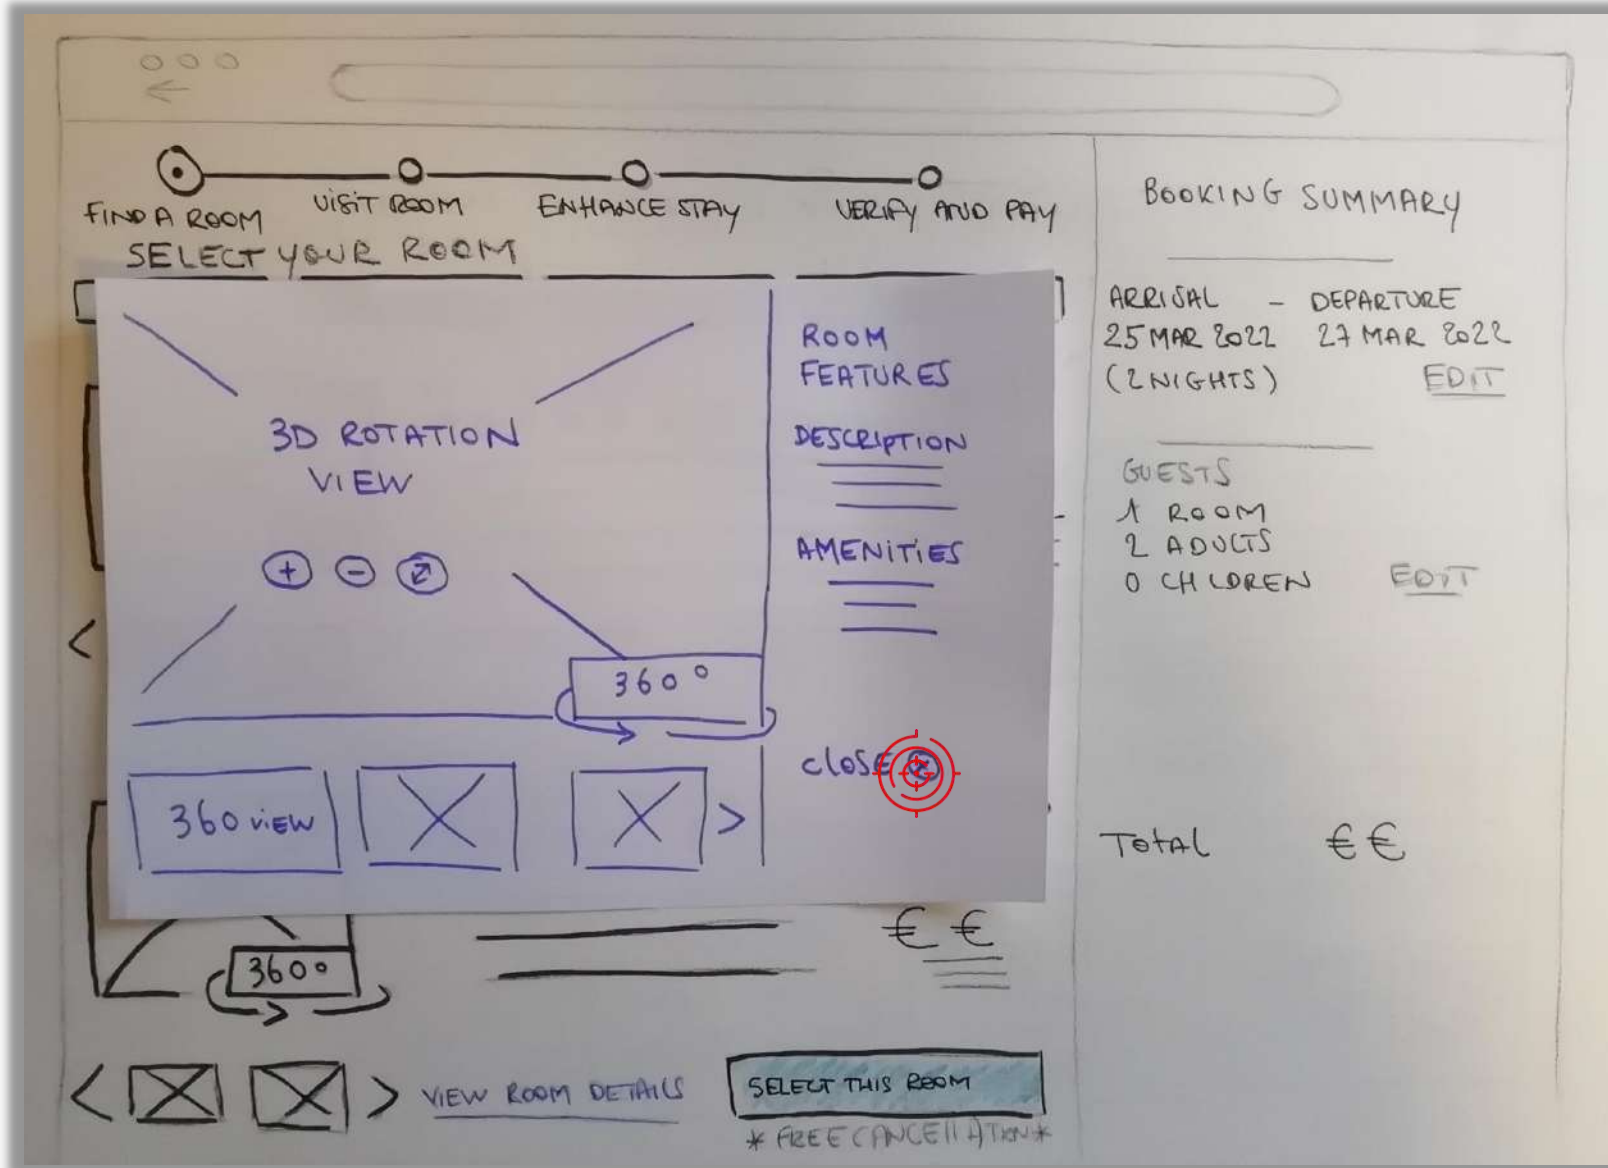 FIND A ROOM
VISIT ROOM
ENHANCE STAY
VERIFY AND PAY
SELECT YOUR ROOM
3D ROTATION
VIEW
+ -
360°
360 VIEW
>
ROOM
FEATURES
DESCRIPTION
AMENITIES
CLOSE
<
360°
€ €
< > VIEW ROOM DETAILS
SELECT THIS ROOM
* FREE CANCELLATION *
BOOKING SUMMARY
ARRIVAL - DEPARTURE
25 MAR 2022 27 MAR 2022
(2 NIGHTS) EDIT
GUESTS
1 ROOM
2 ADULTS
0 CHILDREN EDIT
TOTAL € €